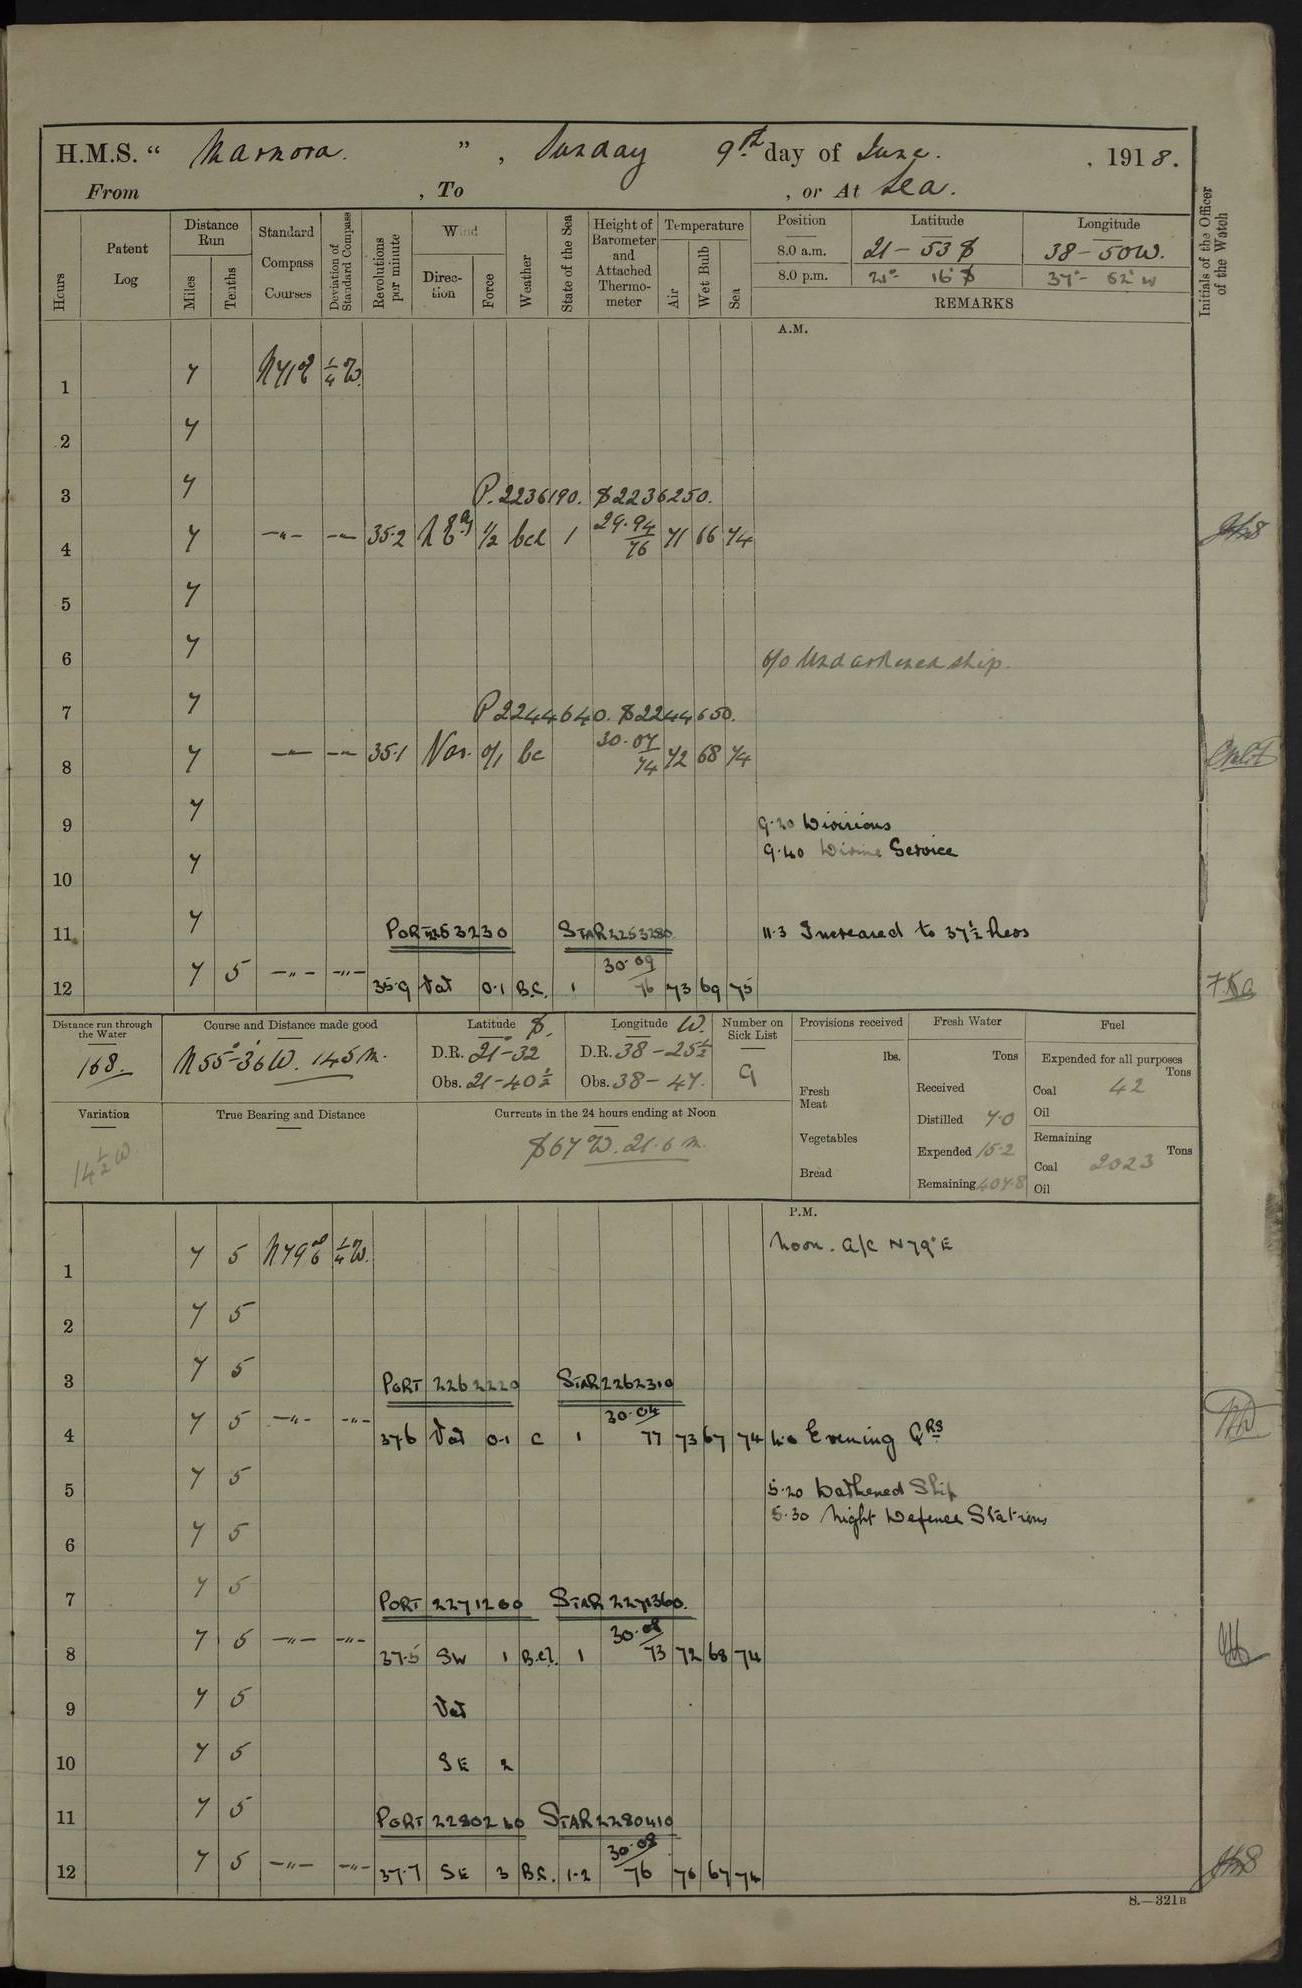 H.M.S. “ Marmora. ” , Sunday 9th day of June. , 1918.
From , To , or At Sea.
Hours
Patent Log
Distance Run
Miles
Tenths
Standard Compass Courses
Deviation of Standard Compass
Revolutions per minute
Wind
Direction
Force
Weather
State of the Sea
Height of Barometer and Attached Thermometer
Temperature
Air
Wet Bulb
Sea
Position Latitude Longitude
8.0 a.m. 21-53 S 38-50 W.
8.0 p.m. 21° 16' S 37°- 52' W
REMARKS
Initials of the Officer of the Watch
A.M.
1 7 N71E 1/4 W.
2 7
3 7 P. 2236190. S 2236250.
4 7 -"- -"- 35.2 N E'ly 1/2 bcl 1 29.94/76 71 66 74
5 7
6 7 6/0 Undarkened ship.
7 7 P 2244640. S 2244650.
8 7 -"- -"- 35.1 Var. 0/1 bc 30.07/74 72 68 74
9 7 9.20 Divisions
9.40 Divine Service
10 7
11 7 PORT 2253230 STAR 2253280 11.3 Increased to 37½ Revs
12 7 5 -"- -"- 35.9 Var 0.1 B.C. 1 30.09/76 73 69 75
Distance run through the Water
168.
Course and Distance made good
N 55°-36' W. 145 m.
Latitude S.
D.R. 21°-32
Obs. 21-40½
Longitude W.
D.R. 38-25½
Obs. 38-47.
Number on Sick List
9
Provisions received
lbs.
Fresh Meat
Vegetables
Bread
Fresh Water
Tons
Received
Distilled 7.0
Expended 15.2
Remaining 407.8
Fuel
Expended for all purposes
Tons
Coal 42
Oil
Remaining
Tons
Coal 2023
Oil
Variation
14½ W.
True Bearing and Distance
Currents in the 24 hours ending at Noon
S 67 W. 21.6 m.
P.M.
1 7 5 N79E 1/4 W. Noon. A/C N79°E
2 7 5
3 7 5 PORT 2262220 STAR 2262310
4 7 5 -"- -"- 37.6 Var 0.1 C 1 30.04/77 73 67 74 4.0 Evening QRS
5 7 5 5.20 Darkened Ship
5.30 Night Defence Stations
6 7 5
7 7 5 PORT 2271260 STAR 2271360.
8 7 5 -"- -"- 37.5 SW 1 B.C.L. 1 30.08/73 72 68 74
9 7 5 Var
10 7 5 SE 2
11 7 5 PORT 2280260 STAR 2280410
12 7 5 -"- -"- 37.7 SE 3 B.C. 1-2 30.08/76 76 67 74
S.—321B